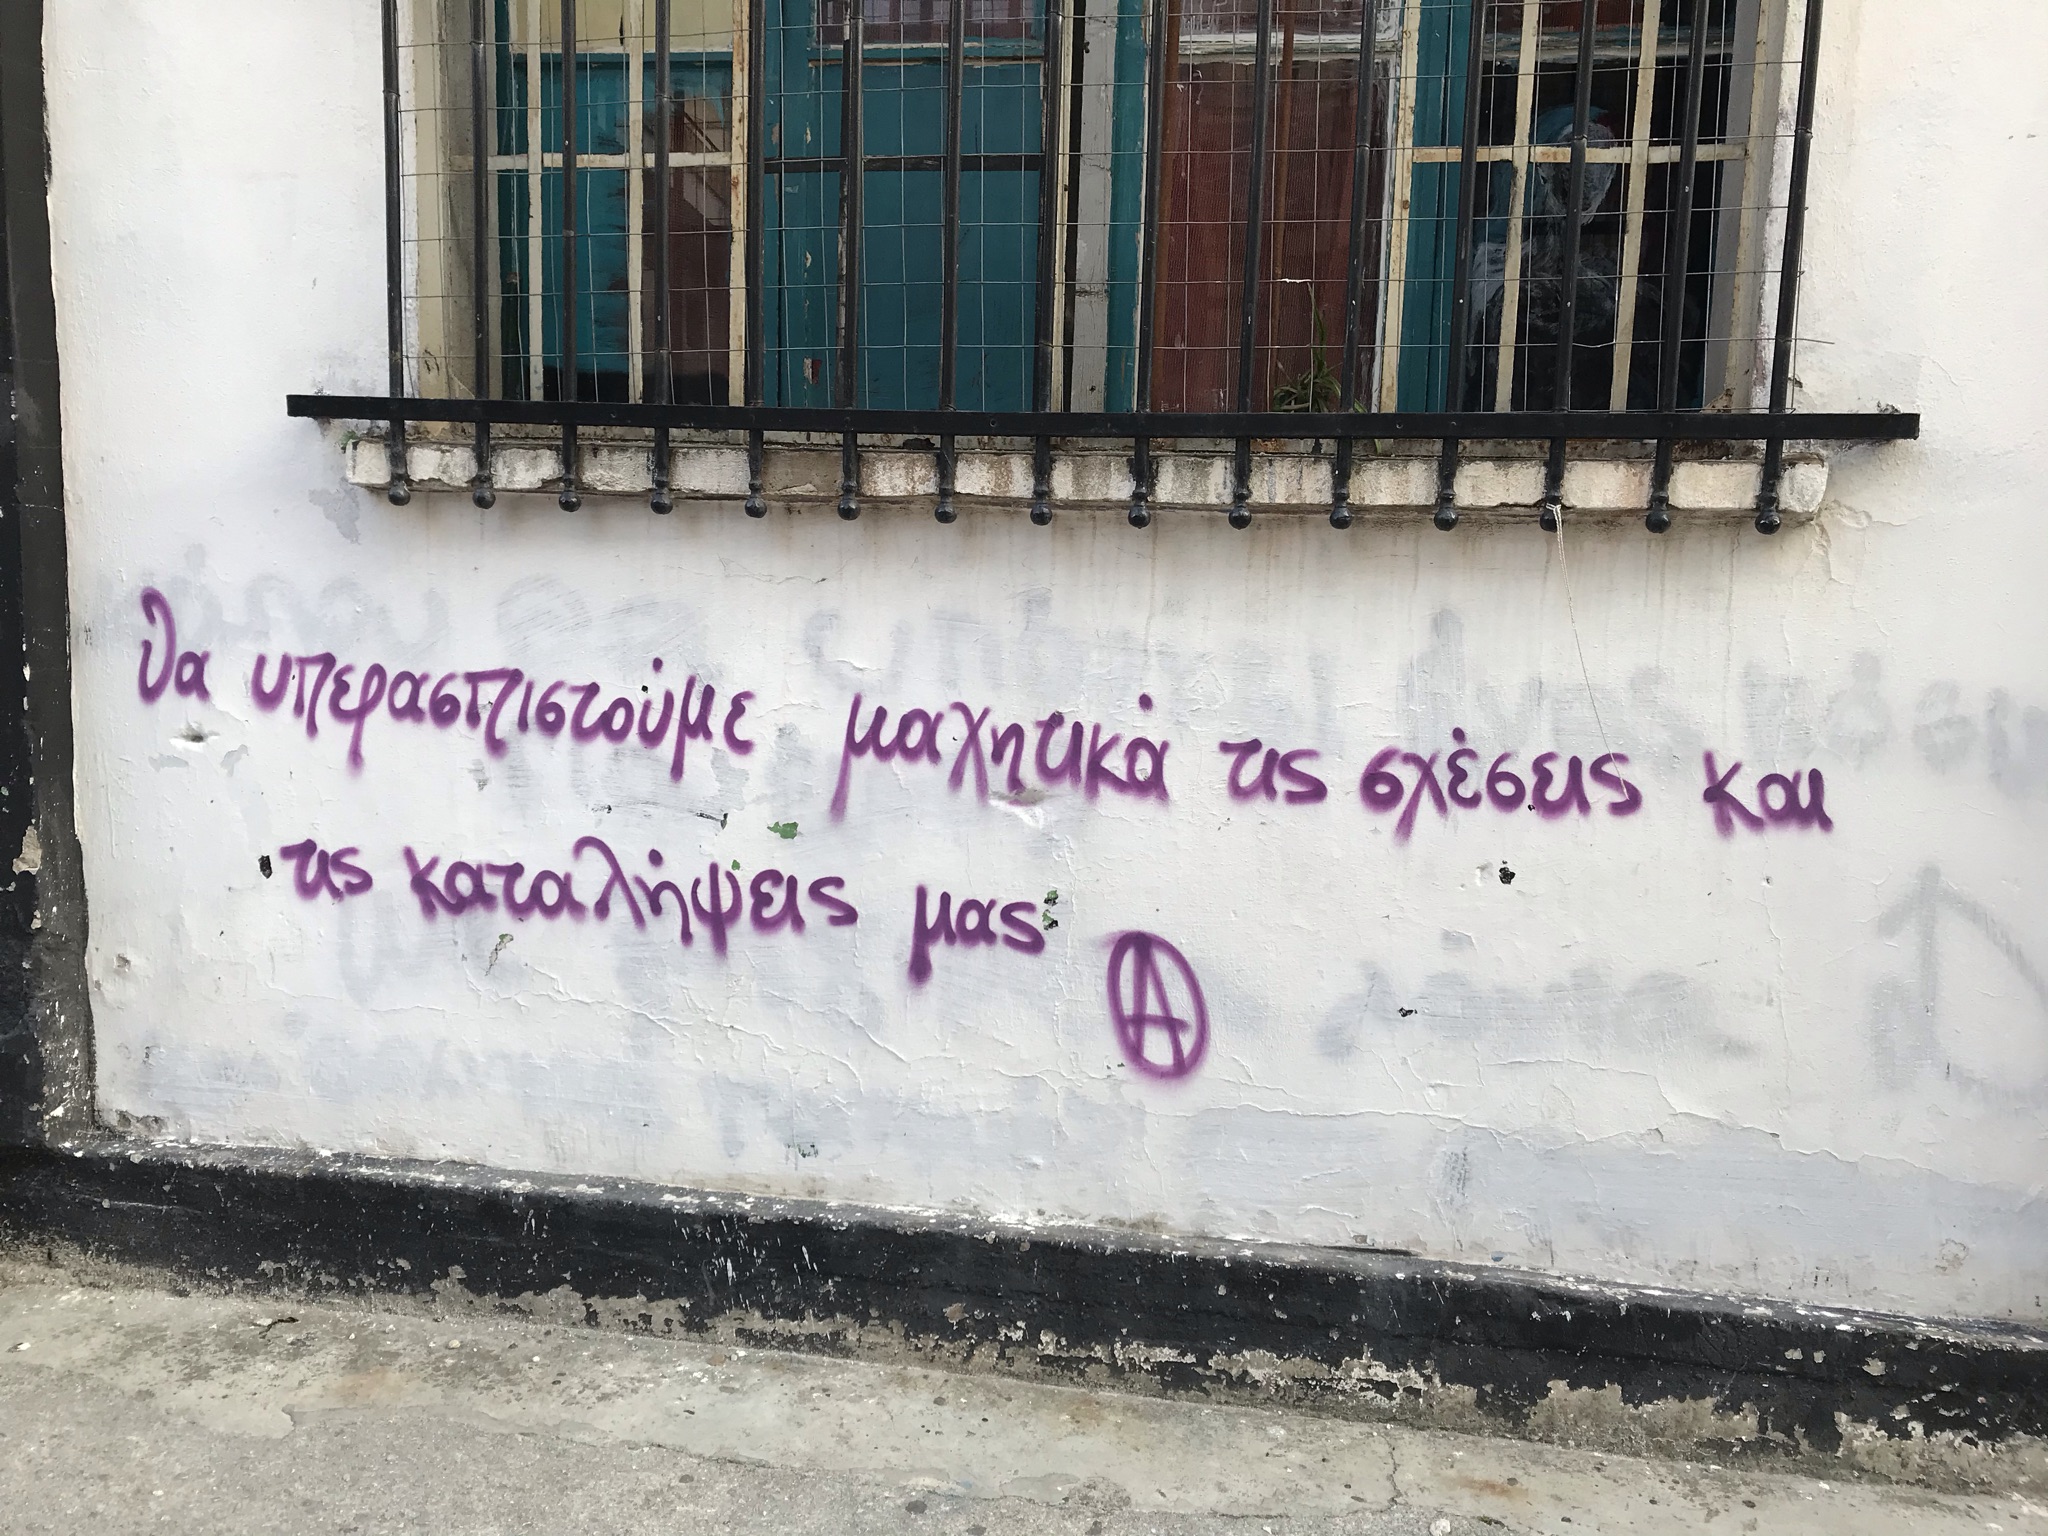 θα υπερασπιστούμε μαχητικά τις σχέσεις και
τις καταλήψεις μας Ⓐ